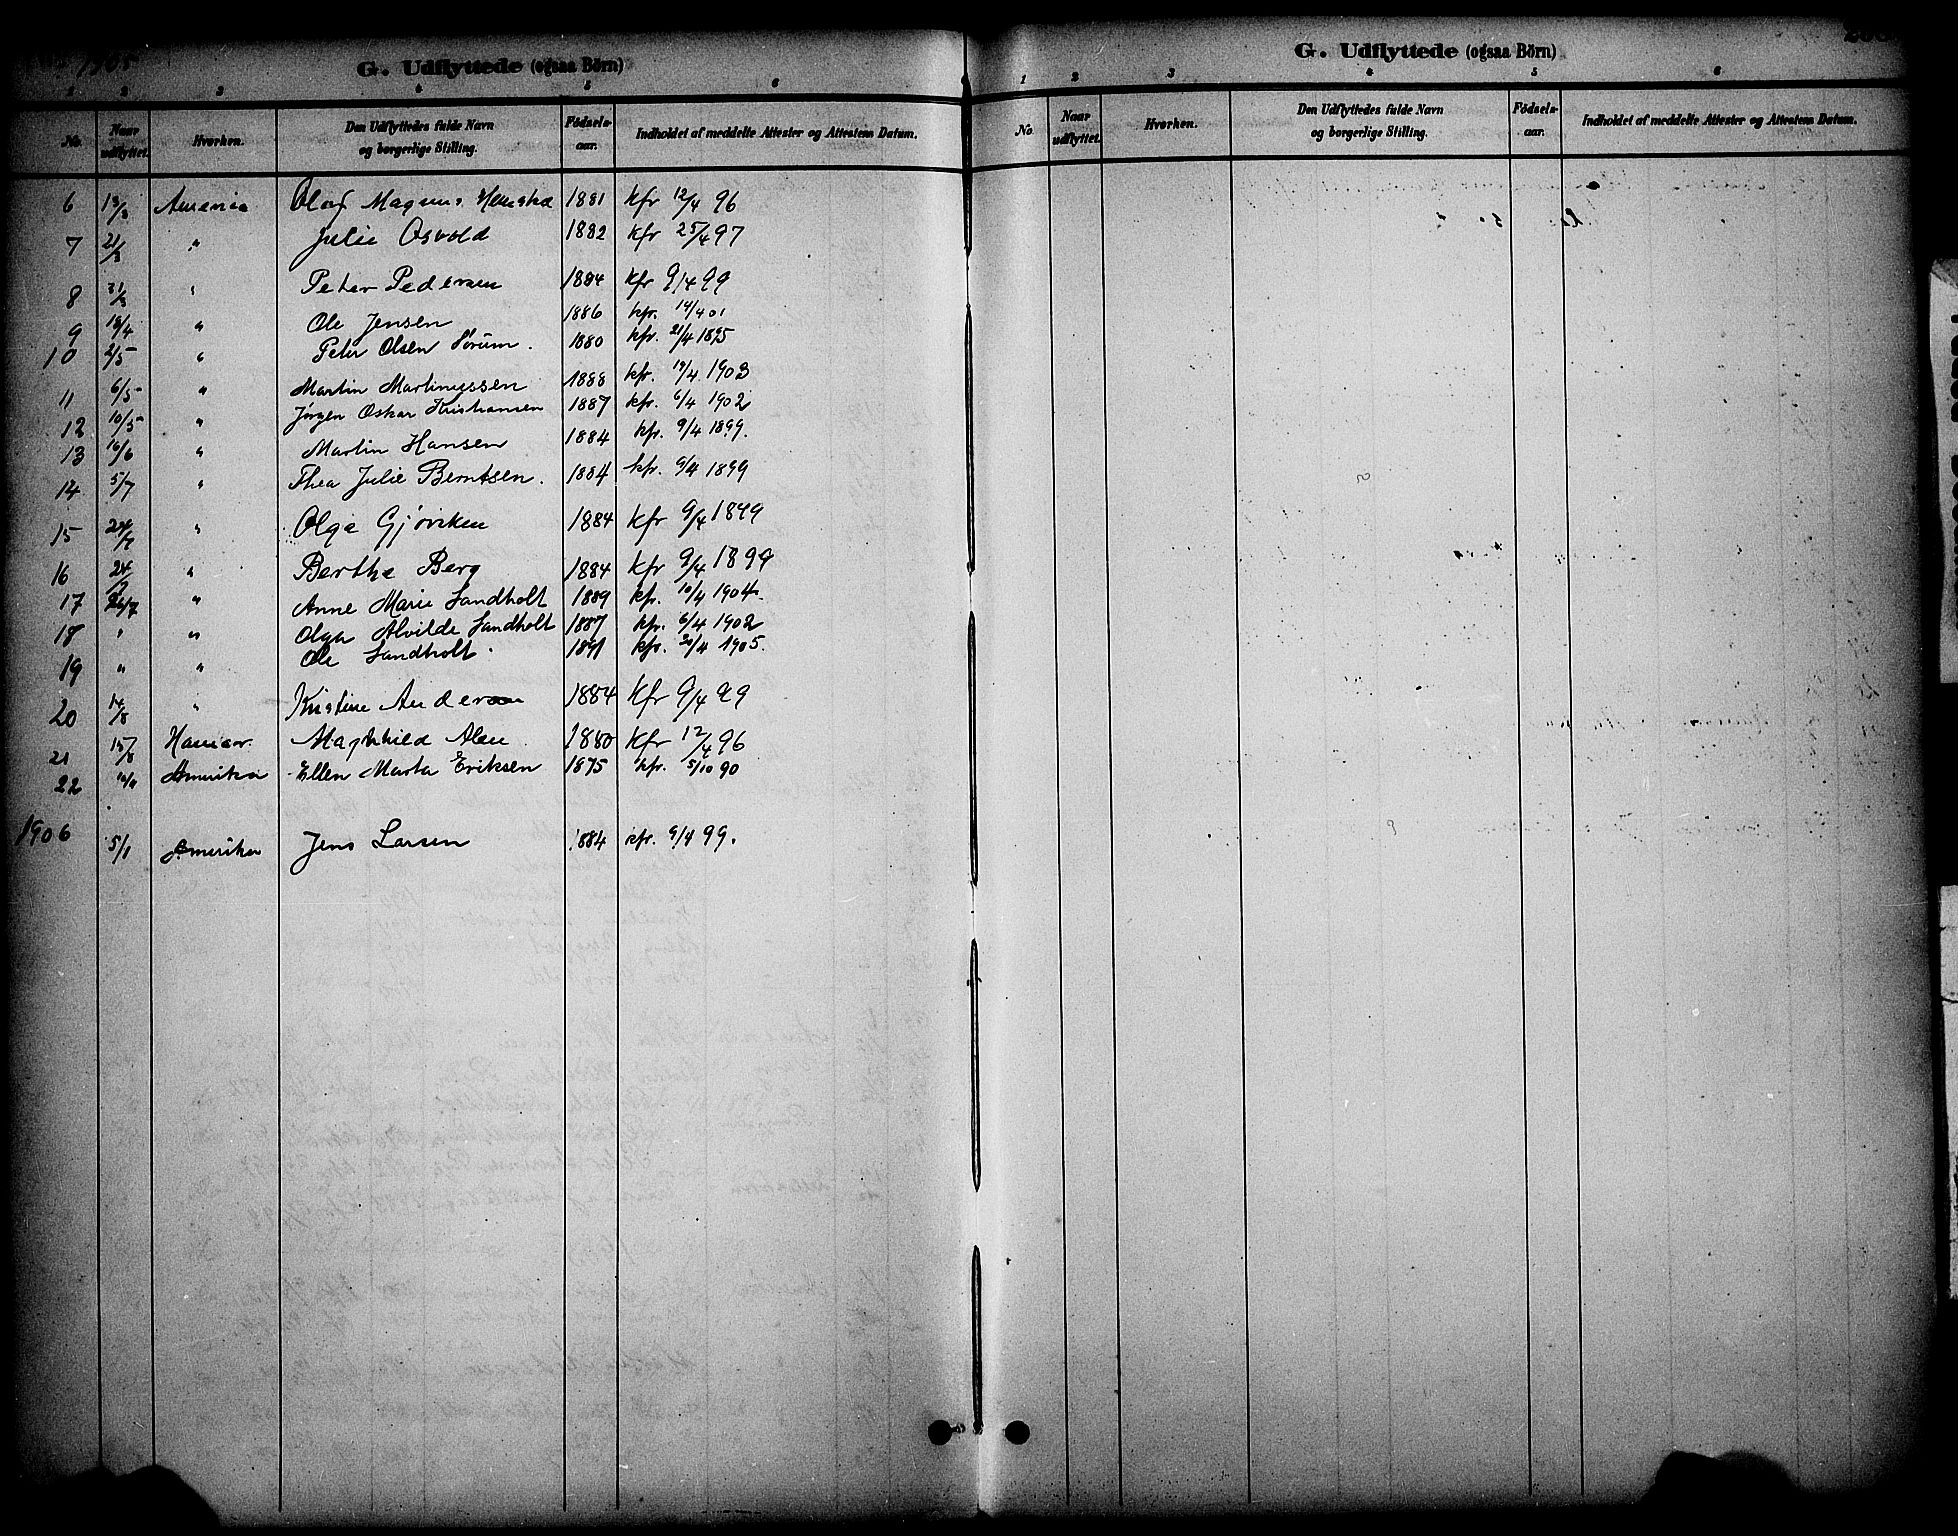 1905
G. Udflyttede (ogsaa Börn)
1 2 3 4 5 6
No. Naar udflyttet. Hvorhen. Den Udflyttedes fulde Navn og borgerlige Stilling. Födsels-aar. Indholdet af meddelte Attester og Attestens Datum.
6 13/3 Amerika Olaf Magnus 1881 kfr 12/4 96
7 21/3 " Julie Osvold 1882 kfr 25/4 97
8 31/3 " Peter Pedersen 1884 kfr 9/4 99
9 18/4 " Ole Jensen 1886 kfr. 14/4 01
10 2/5 " Peter Olsen Sörum. 1880 kfr. 21/4 1895
11 6/5 " Martin Martinussen 1888 kfr. 19/4 1903
12 10/5 " Jörgen Oskar Kristiansen 1887 kfr. 6/4 1902
13 16/6 " Martin Hansen 1884 kfr. 9/4 1899.
14 5/7 " Thea Julie Berntsen. 1884 kfr. 9/4 1899
15 24/7 " Olga Gjöviken 1884 kfr 9/4 1899
16 24/7 " Berthe Berg 1884 kfr 9/4 1899
17 26/7 " Anne Marie Sandholt 1889 kfr. 10/4 1904.
18 " " Olga Alvilde Sandholt 1887 kfr. 6/4 1902
19 " " Ole Sandholt 1891 kfr. 30/4 1905.
20 14/8 " Kristine Andersen 1884 kfr 9/4 99
21 15/8 Hamar. Magnhild Alm 1880 kfr 12/4 96
22 Amerika Ellen Marta Eriksen 1875 kfr. 5/10 90
1906
5/1 Amerika Jens Larsen 1884 kfr. 9/4 99.
G. Udflyttede (ogsaa Börn)
1 2 3 4 5 6
No. Naar udflyttet. Hvorhen. Den Udflyttedes fulde Navn og borgerlige Stilling. Födsels-aar. Indholdet af meddelte Attester og Attestens Datum.